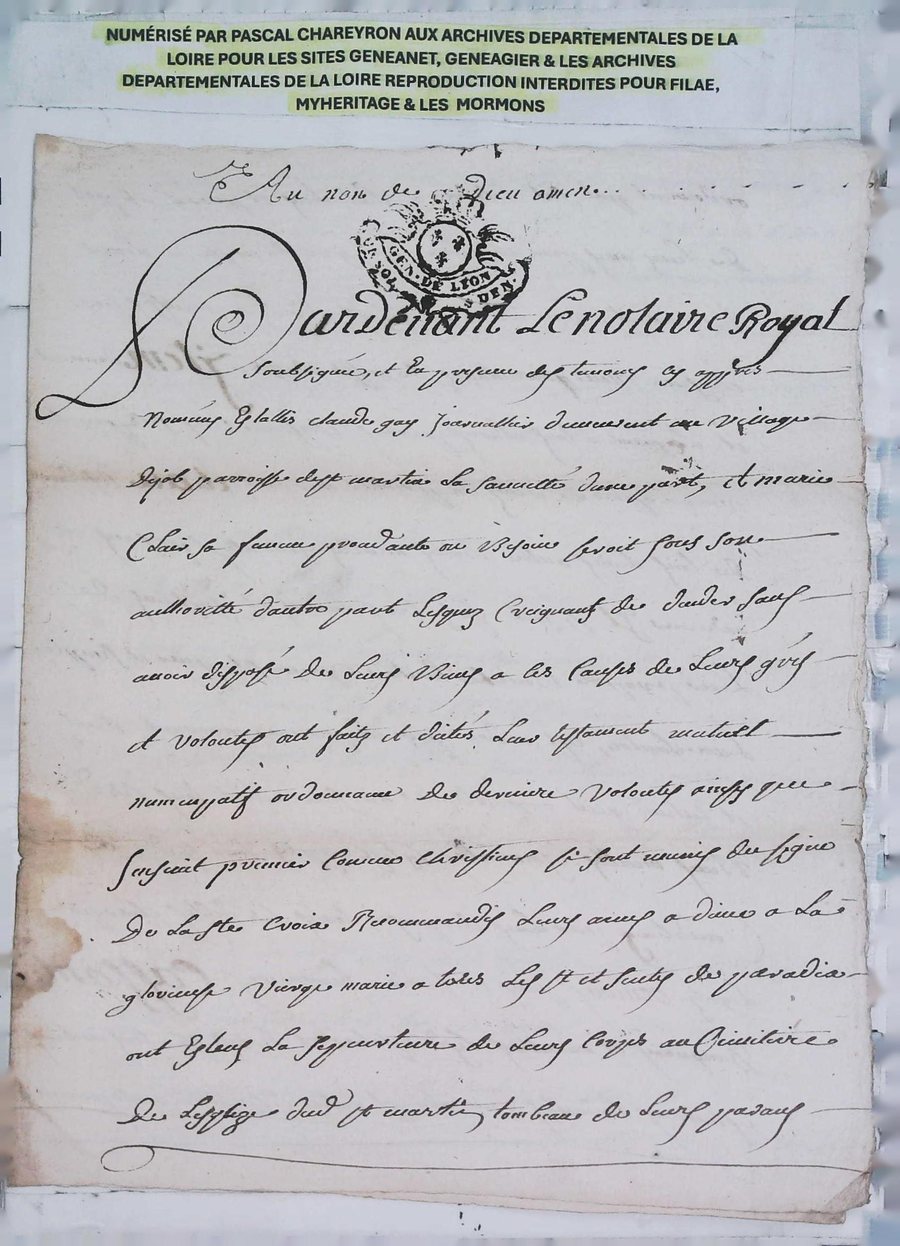 NUMÉRISÉ PAR PASCAL CHAREYRON AUX ARCHIVES DEPARTEMENTALES DE LA
LOIRE POUR LES SITES GENEANET, GENEAGIER & LES ARCHIVES
DEPARTEMENTALES DE LA LOIRE REPRODUCTION INTERDITES POUR FILAE,
MYHERITAGE & LES MORMONS
Au non de Dieu amen
GEN. DE LION
Pardevant Le notaire Royal
Soubsigné, et En presence des temoins cy appres
Nommés Establis claude gay Journallier demeurant au Village
dejob parroisse de st martin La sauveté d'une part, et marie
Clair sa femme procedante ou Besoin seroit sous son
authorité d'autre part Lesquez Creignant de deceder sans
avoir disposé de Leurs Biens a les Causes de Leurs
et volontés ont faits et dictés Leur testament mutuel
nuncupatif ordonnance De derniere volontés ainsy que
sensuit premier Comme chrestiens se sont munis du signe
De La ste Croix Recommandés Leurs ames a dieu a La
glorieuse Vierge marie a tous Les st et sintes de paradis
ont Esleus La sepourture de Leurs Corps au Cimitiere
De Lesglize dud st martin, tombeau de Leurs parans